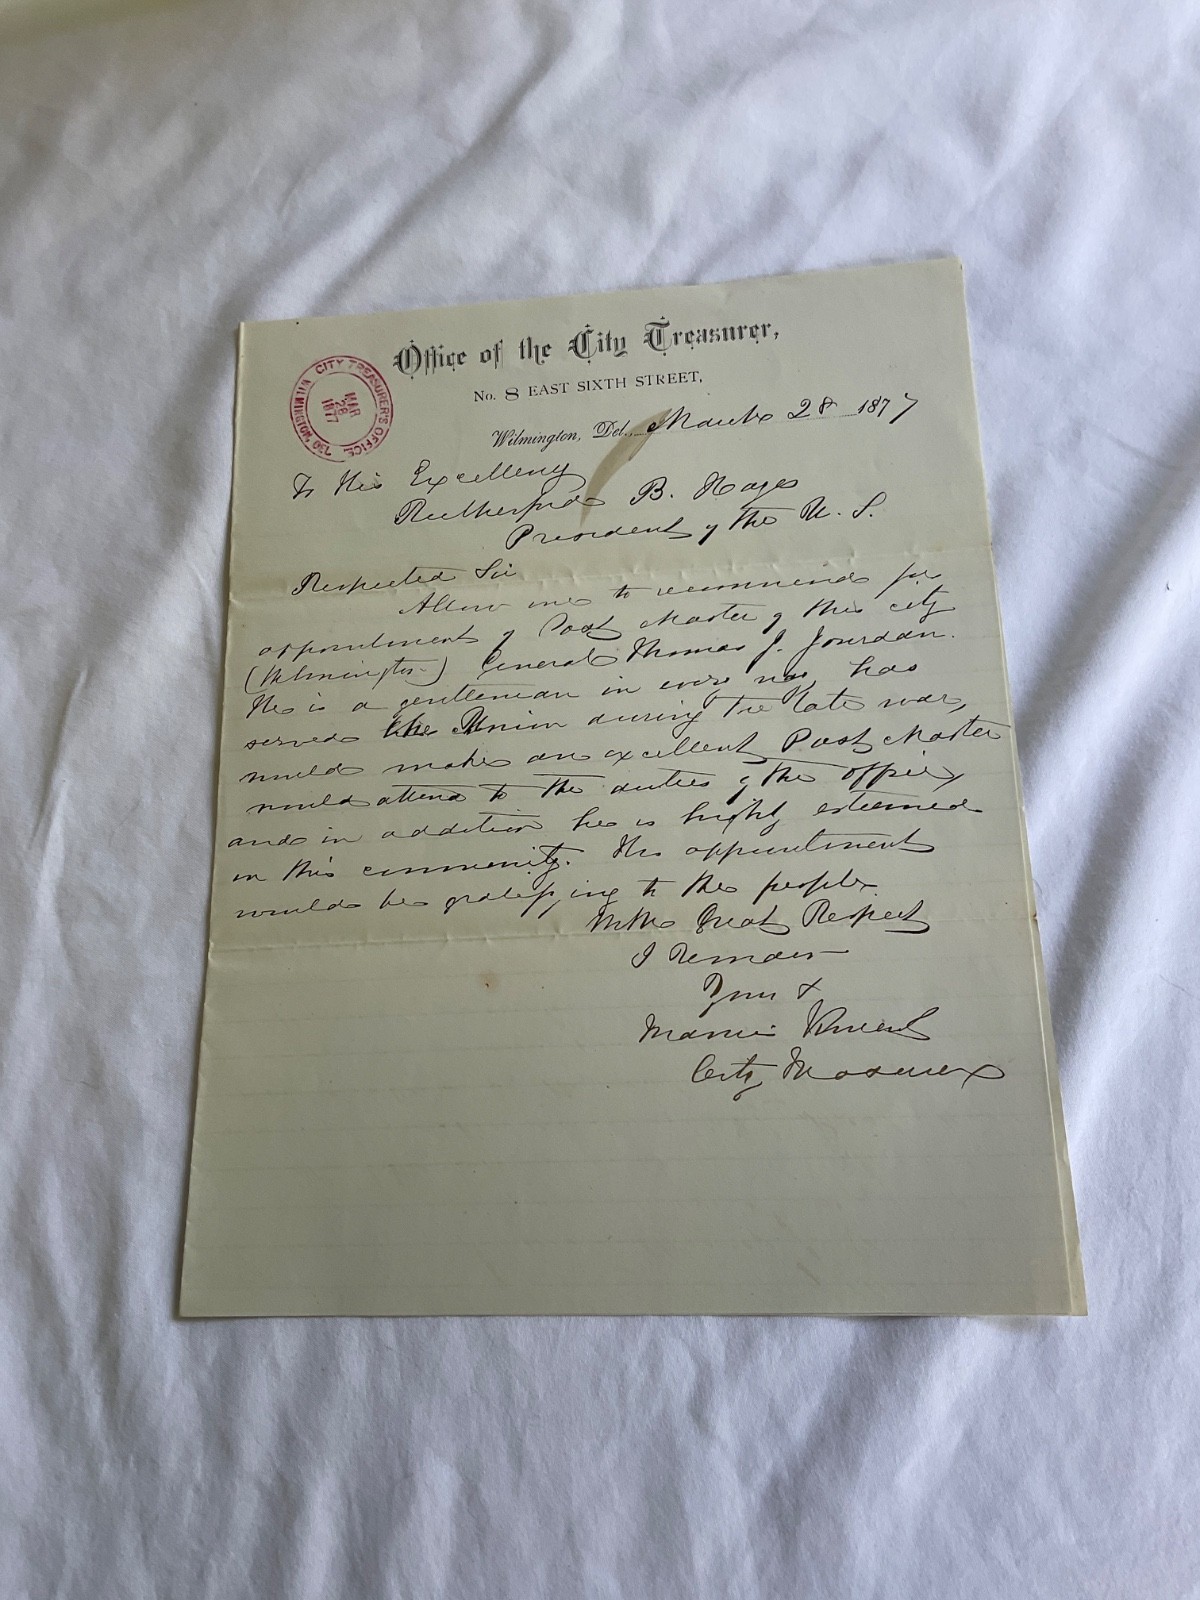 Office of the City Treasurer,
No. 8 EAST SIXTH STREET,
CITY TREASURER'S OFFICE
WILMINGTON, DEL.
MAR
28
1877
Wilmington, Del., March 28 1877
To His Excellency
Rutherford B. Hayes
President of the U. S.
Respected Sir
Allow me to recommend for
appointment of Post Master of this city
(Wilmington) General Thomas J. Jourdan.
He is a gentleman in every way, has
served the Union during the late war,
would make an excellent Post Master
would attend to the duties of the office
and in addition he is highly esteemed
in this community. His appointment
would be gratifying to the people.
With Great Respect
I Remain
Your &
Vincent
City Treasurer